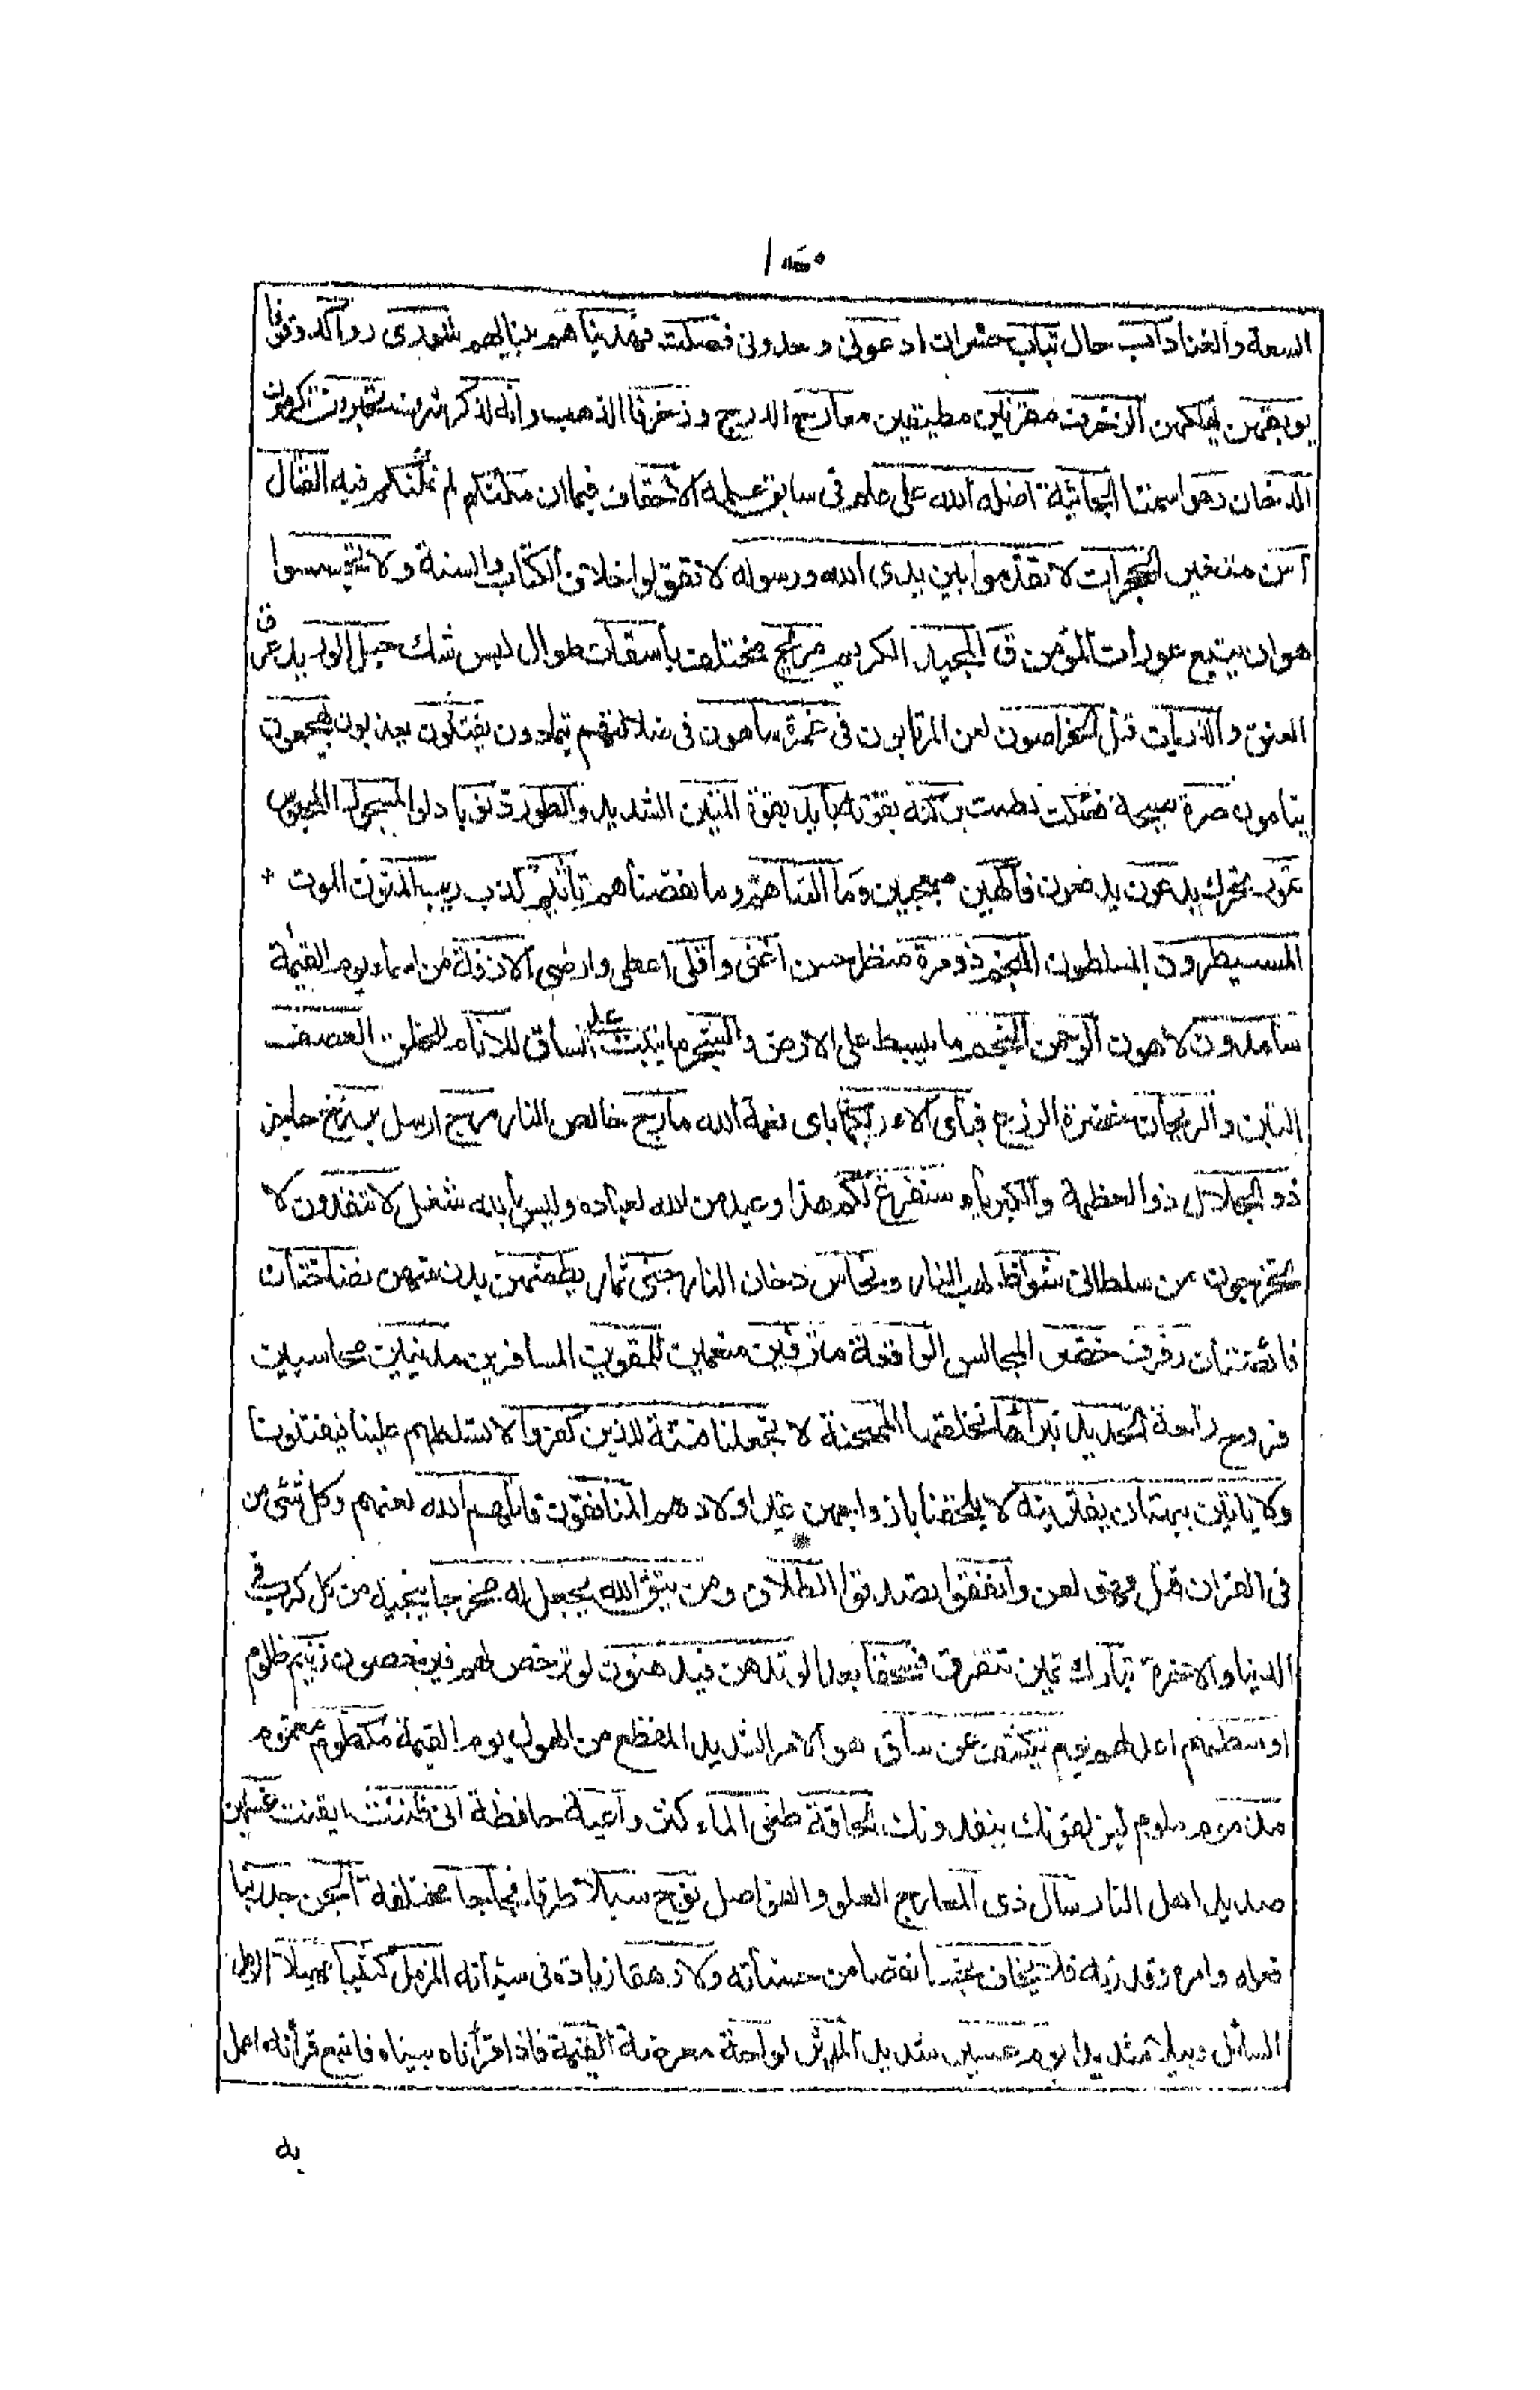 السعة والغنا داب حال تباب خسران ادعونى وحدونى فصلت فهديناهم بينا لهم شورى رواكد وقوفا
يوبقهن يهلكهن الزخرف مقرنين مطيقين معارج الدرج وزخرفا الذهب وانه لذكر شرف تحبرون تكرمون
الدخان رهوا سمتا الجاثية اضله الله على علم فى سابق علمه الاحقاف فيما ان مكنكم لم نمكنكم فيه القتال
آسن متغير الحجرات لا تقدموا بين يدى الله ورسوله لا تقولوا خلاف الكتاب والسنة ولا تجسسوا
هو ان يتبع عورات المؤمن ق المجيد الكريم مريج مختلف باسقات طوال لبس شك حبل الوريد عرق
العنق والذريات قتل الخراصون لعن المرتابون فى غمرة ساهون فى ضلالتهم يتمادون يفتنون يعذبون يهجعون
ينامون صرة صيحة فصكت لطمت بركنه بقوته بايد بقوة المتين الشديد والطور ذنوبا دلوا المسجور المحبوس
تمور تحرك يدعون يدفعون فاكهين معجبين وما التناهم وما نقصناهم تاثيم كذب ريب المنون الموت
المسيطرون المسلطون النجم ذو مرة منظر حسن اغنى واقنى اعطى وارضى الازفة من اسماء يوم القيمة
سامدون لاهون الرحمن النجم ما يبسط على الارض والشجر ما ينبت على الساق للانام للخلق العصف
التبن والريحان خضرة الزرع فباى الاء ربكما باى نعمة الله مارج خالص النار مرج ارسل برزخ حاجز
ذو الجلال ذو العظمة والكبرياء سنفرغ لكم هذا وعيد من الله لعباده وليس بالله شغل لا تنفذون لا
تخرجون من سلطانى شواظ لهب النار ونحاس دخان النار جنى ثمار يطمثهن يدن منهن نضاختان
فائضتان رفرف خضر المجالس الواقعة مترفين منعمين للمقوين المسافرين مدينين محاسبين
فروح راحة الحديد نبراها نخلقها الممتحنة لا تجعلنا فتنة للذين كفروا لا تسلطهم علينا فيفتنونا
ولا ياتين ببهتان يفترينه لا يلحقن بازواجهن غير اولادهم المنافقون قاتلهم الله لعنهم وكل شئ من
فى القران قتل فهو لعن وانفقوا تصدقوا الطلاق ومن يتق الله يجعل له مخرجا ينجيه من كل كرب فى
الدنيا والاخرة تبارك تميز تتفرق فسحقا بعدا لو تدهن فيدهنون لو ترخص لهم فيرخصون زنيم ظلوم
اوسطهم اعدلهم يوم يكشف عن ساق هو الامر الشديد المفظع من الهول يوم القيمة مكظوم مغموم
مذموم ملوم ليزلقونك ينفذونك الحاقة طغى الماء كثر واعية حافظة انى ظننت ايقنت غسلين
صديد اهل النار سال ذى المعارج العلو والفواضل نوح سبلا طرقا فجاجا مختلفة الجن جد ربنا
فعله وامره وقدرته فلا يخاف بخسا نقصا من حسناته ولا رهقا زيادة فى سيئآته المزمل كثيبا مهيلا الرمل
السائل وبيلا شديدا يوم عسير شديد المدثر لواحة معرضة القيمة فاذا قرأناه بيناه فاتبع قرأنه اعمل
به